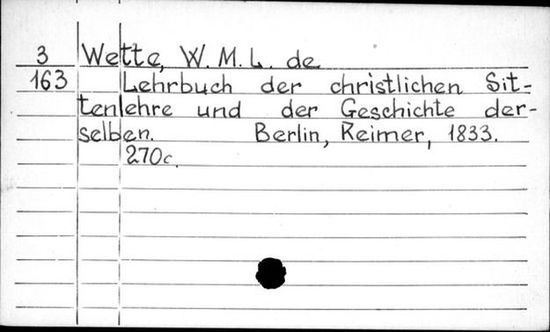 3 Wette, W. M. L. de
163 Lehrbuch der christlichen Sit-
tenlehre und der Geschichte der-
selben. Berlin, Reimer, 1833.
270c.